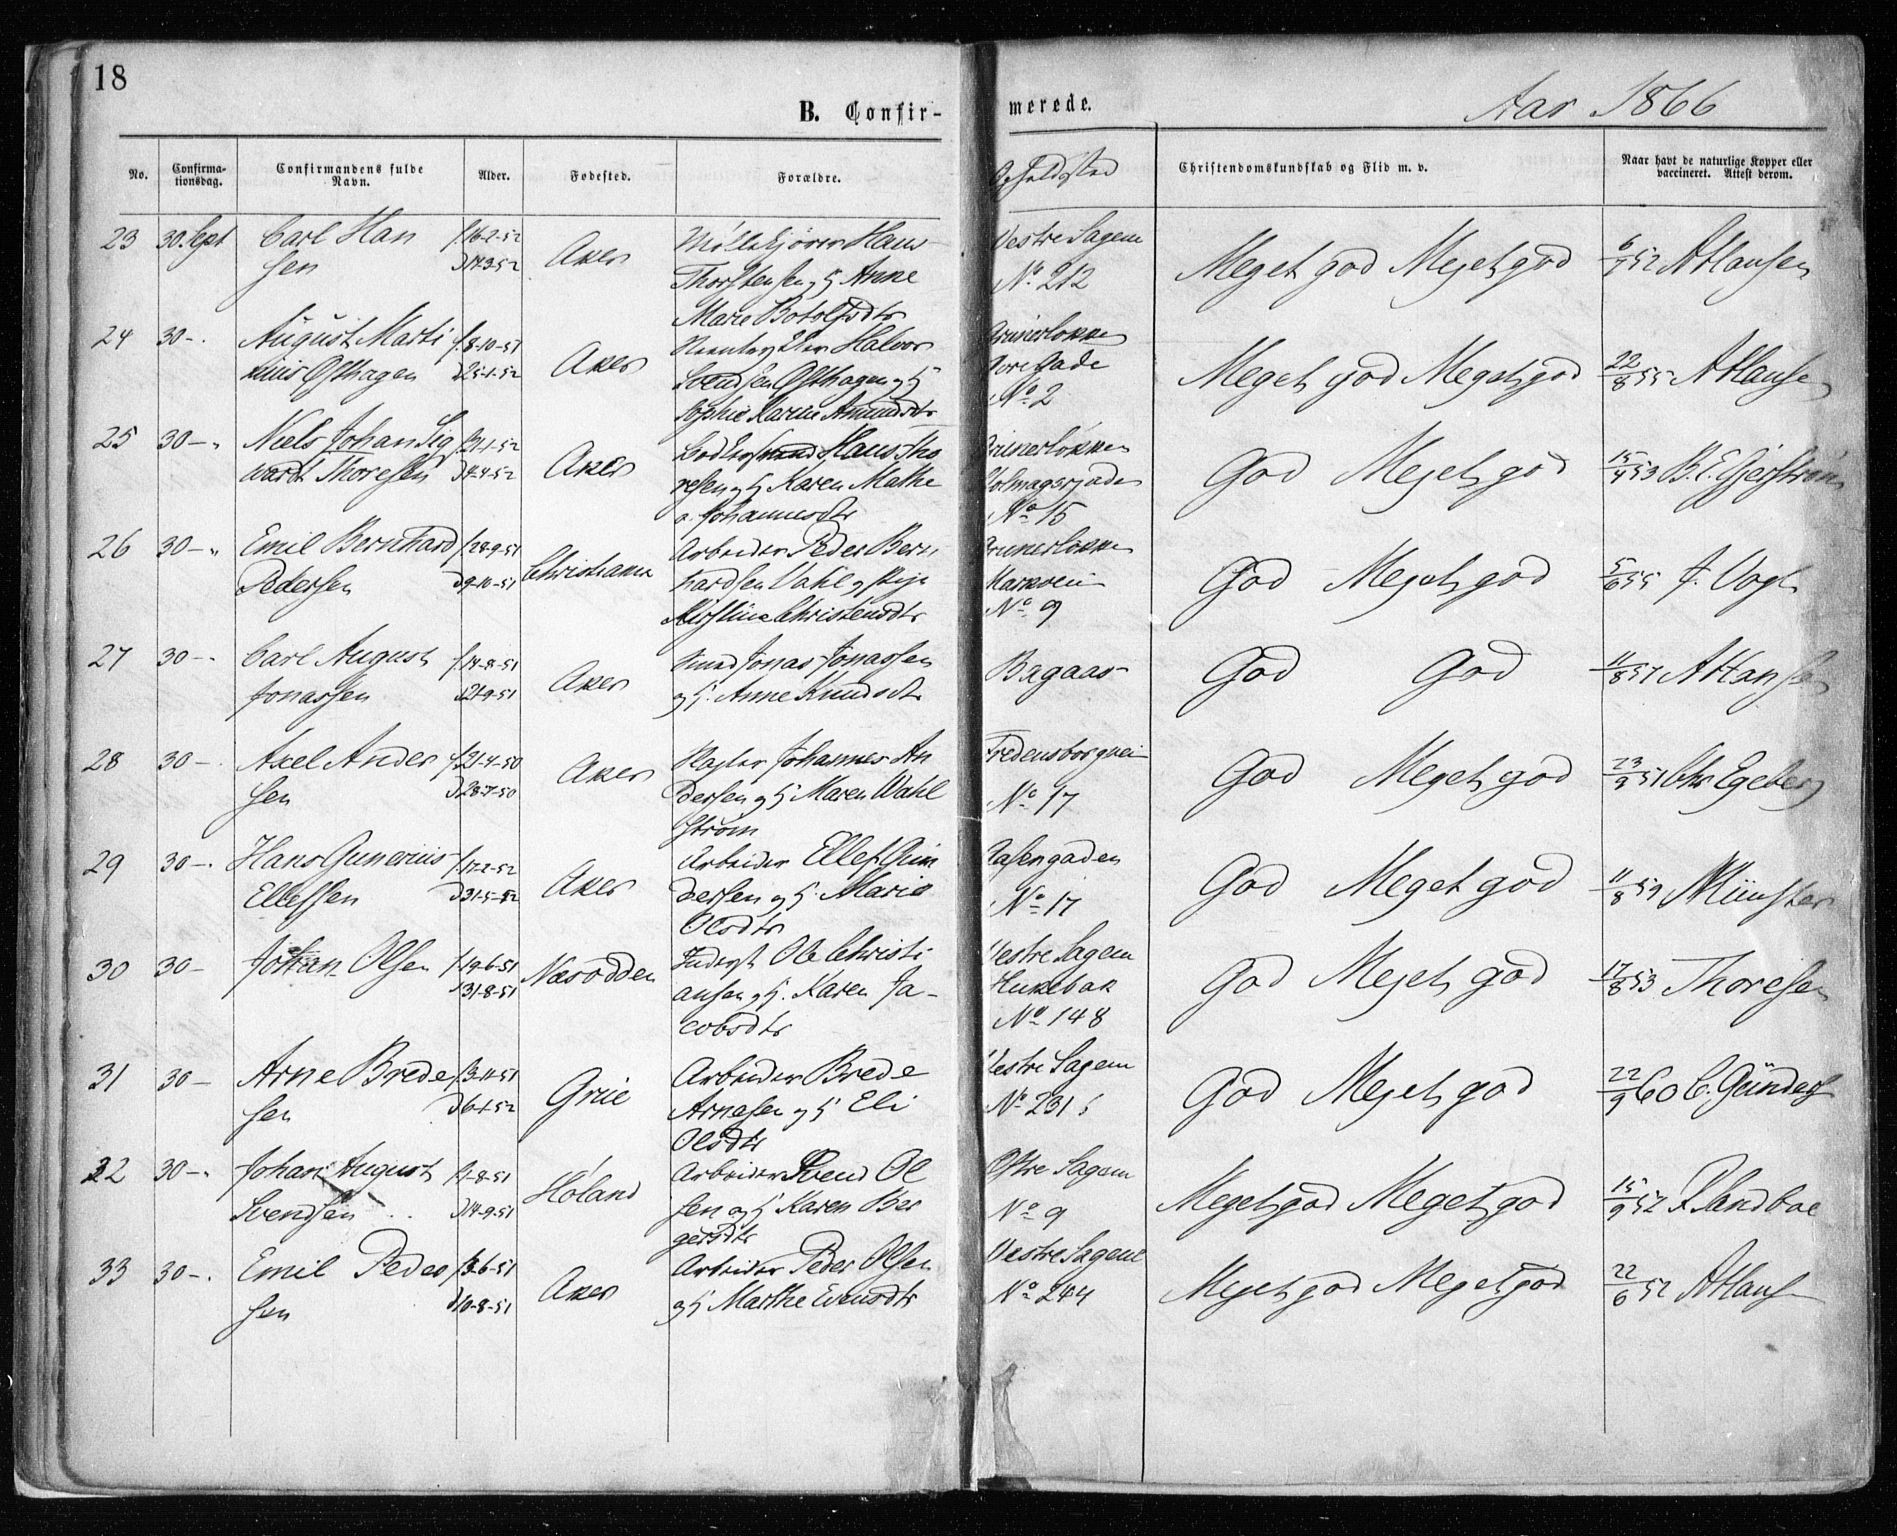 18
B. Confir-
merede.
Aar 1866
No.
Confirma-
tionsdag.
Confirmandens fulde
Navn.
Alder.
Fødested.
Forældre.
Opholdsted
Christendomskundskab og Flid m. v.
Naar havt de naturlige Kopper eller
vaccineret. Attest derom.
23 30 Sept Carl Han f. 16-2-52 Aker Møllekjører Hans Vestre Sagene Meget god Meget god 52 A Hansen
sen D 17-3-52 Thorstensen og H Anne No 212
Marie Botolfsdtr
24 30 - . August Marti f. 8-10-51 Aker Halvor Grünerløkken Meget god Meget god 22/8 55 A Hansen
nius Østhagen D 25-1-52 Svendsen Østhagen og H Gade
Sophie Karine Amundsdtr No 2
25 30 - „ Niels Johan Sig f. 21-1-52 Aker Hans Tho Grünerløkken God Meget god 15/4 53
wardt Thoresen D 4-4-52 resen og H Karen Mathe Tolmagergaden
a Johannesdtr No 15
26 30 - „ Emil Bernhard f. 28-9-51 Christiania Arbeider Peder Bern Grünerløkken God Meget god 5/6 55 J. Vogt
Pedersen D 9-10-51 hardsen Dahl og Pige Markveien
Kirstine Christensdtr No 9
27 30 - . Carl August f. 14-8-51 Aker Jonas Jonassen Bagaas God God 11/8 57 A Hansen
Jonassen D 21-9-51 og H. Anne Knudsdtr
28 30 - Axel Ander f. 21-4-50 Aker Johannes An Fredensborgvei God Meget god 23/9 51 Chr Egeberg
sen D 28-7-50 dersen og H Maren Wahl No 17
strøm
29 30 - . Hans Gunerius f. 17-2-52 Aker Arbeider Ellef Gun gaden God Meget god 11/8 59 Münster
Ellefsen D 31-5-52 dersen og H. Marie No 17
Olsdtr
30 30 - Johan Olsen f. 19-6-51 Næsodden Inderst Ole Christi Vestre Sagene God Meget god 17/8 53 Thoresen
D 31-8-51 ansen og H. Karen Ja- Hukebak
cobsdtr No 148
31 30 - Arne Brede f. 3-11-51 Grue Arbeider Brede Vestre Sagene God Meget god 22/9 60 C. Gündersen
sen D 6-1-52 Arnesen og H Eli No 231
Olsdtr
32 30 - . Johan August f. 1-8-51 Høland Arbeider Svend Ol Østre Sagene Meget god Meget god 15/9 52 Sandboe
Svendsen D 14-9-51 sen og H Karen Bir No 9
gersdtr
33 30 - . Emil Peder f. 3-6-51 Aker Arbeider Peder Olsen Vestre Sagene Meget god Meget god 22/6 52 A Hansen
sen D 10-8-51 og H Marthe Evensdtr No 244